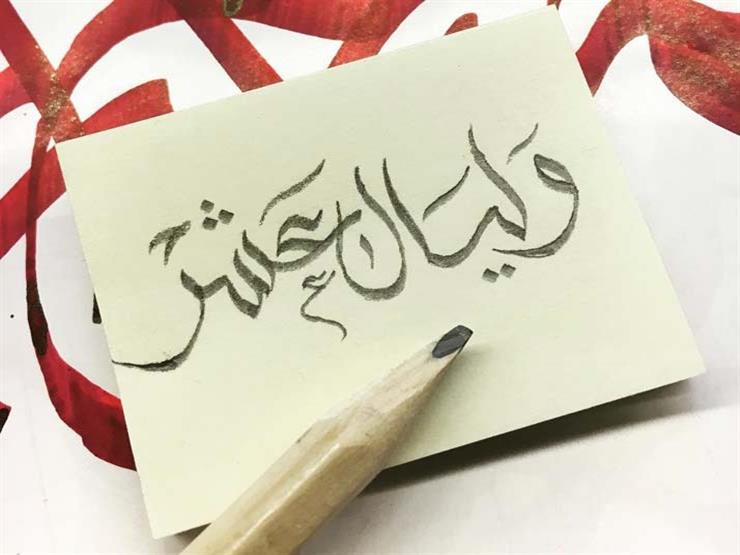 وَليَالٍ عَشْرٍ